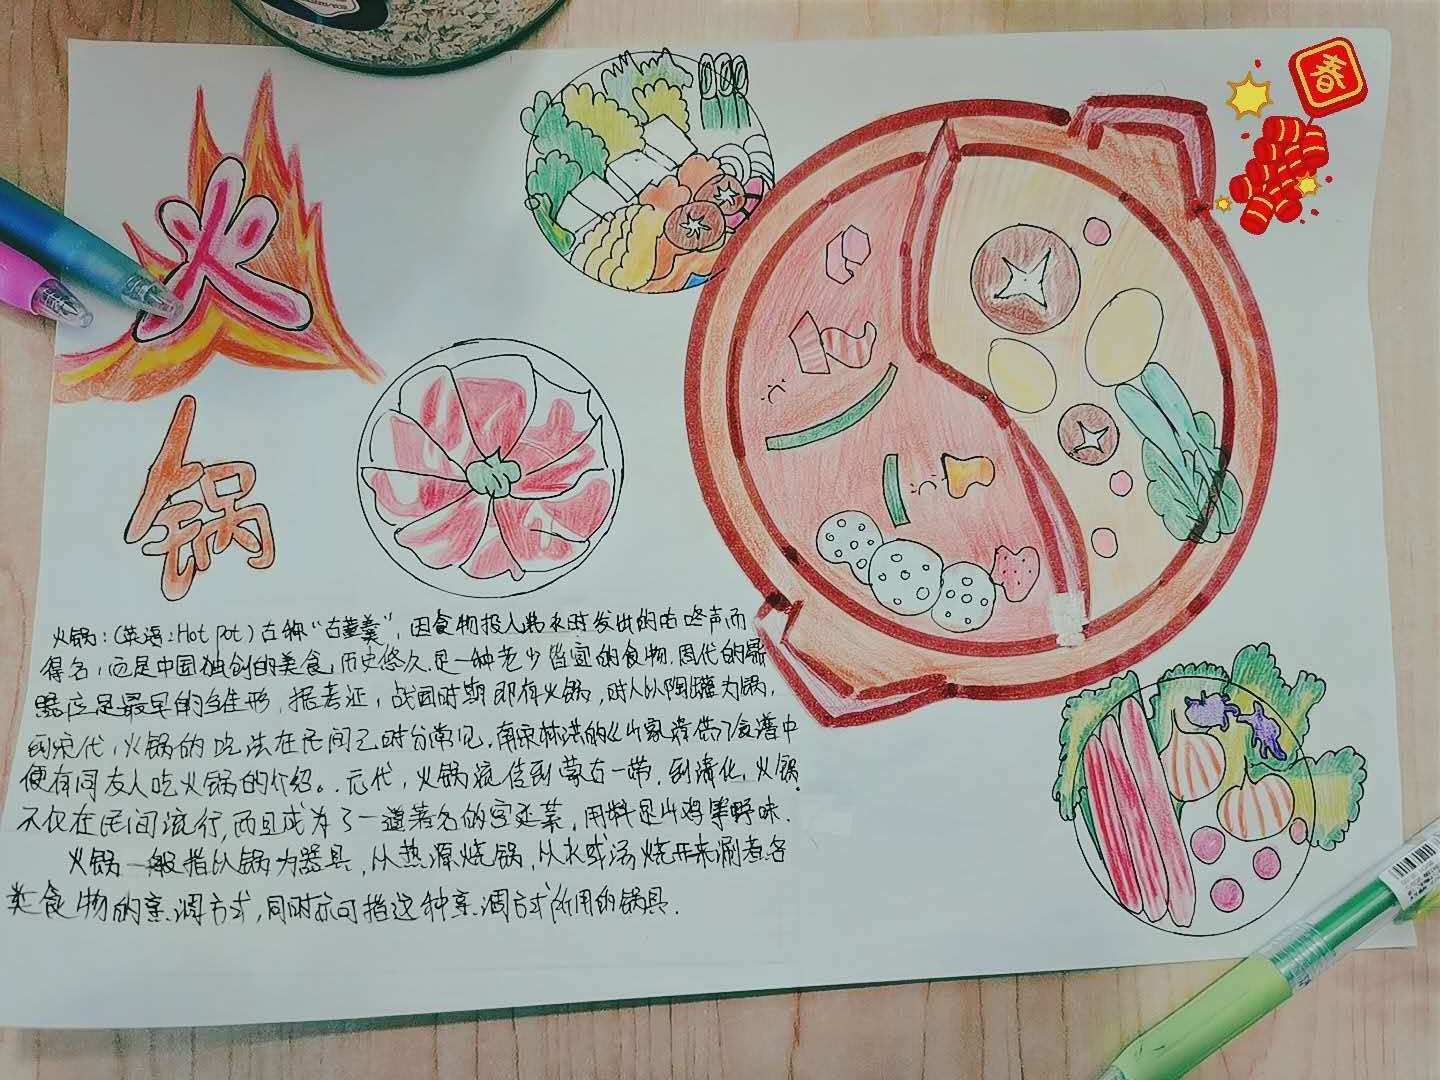 火
锅
春
火锅:(英语:Hot pot)古称"古董羹",因食物投入沸水时发出的咕咚声而
得名,它是中国独创的美食,历史悠久,是一种老少皆宜的食物.周代的
应是最早的雏形,据考证,战国时期即有火锅,时人以陶罐为锅,
到宋代,火锅的吃法在民间已时分常见,南宋林洪的《山家清供》食谱中
便有同友人吃火锅的介绍。元代,火锅流传到蒙古一带,到清代,火锅
不仅在民间流行,而且成为了一道著名的宫廷菜,用料是山鸡等野味.
火锅一般指以锅为器具,以热源烧锅,以水或汤烧开来涮煮各
类食物的烹调方式,同时亦可指这种烹调方式所用的锅具.